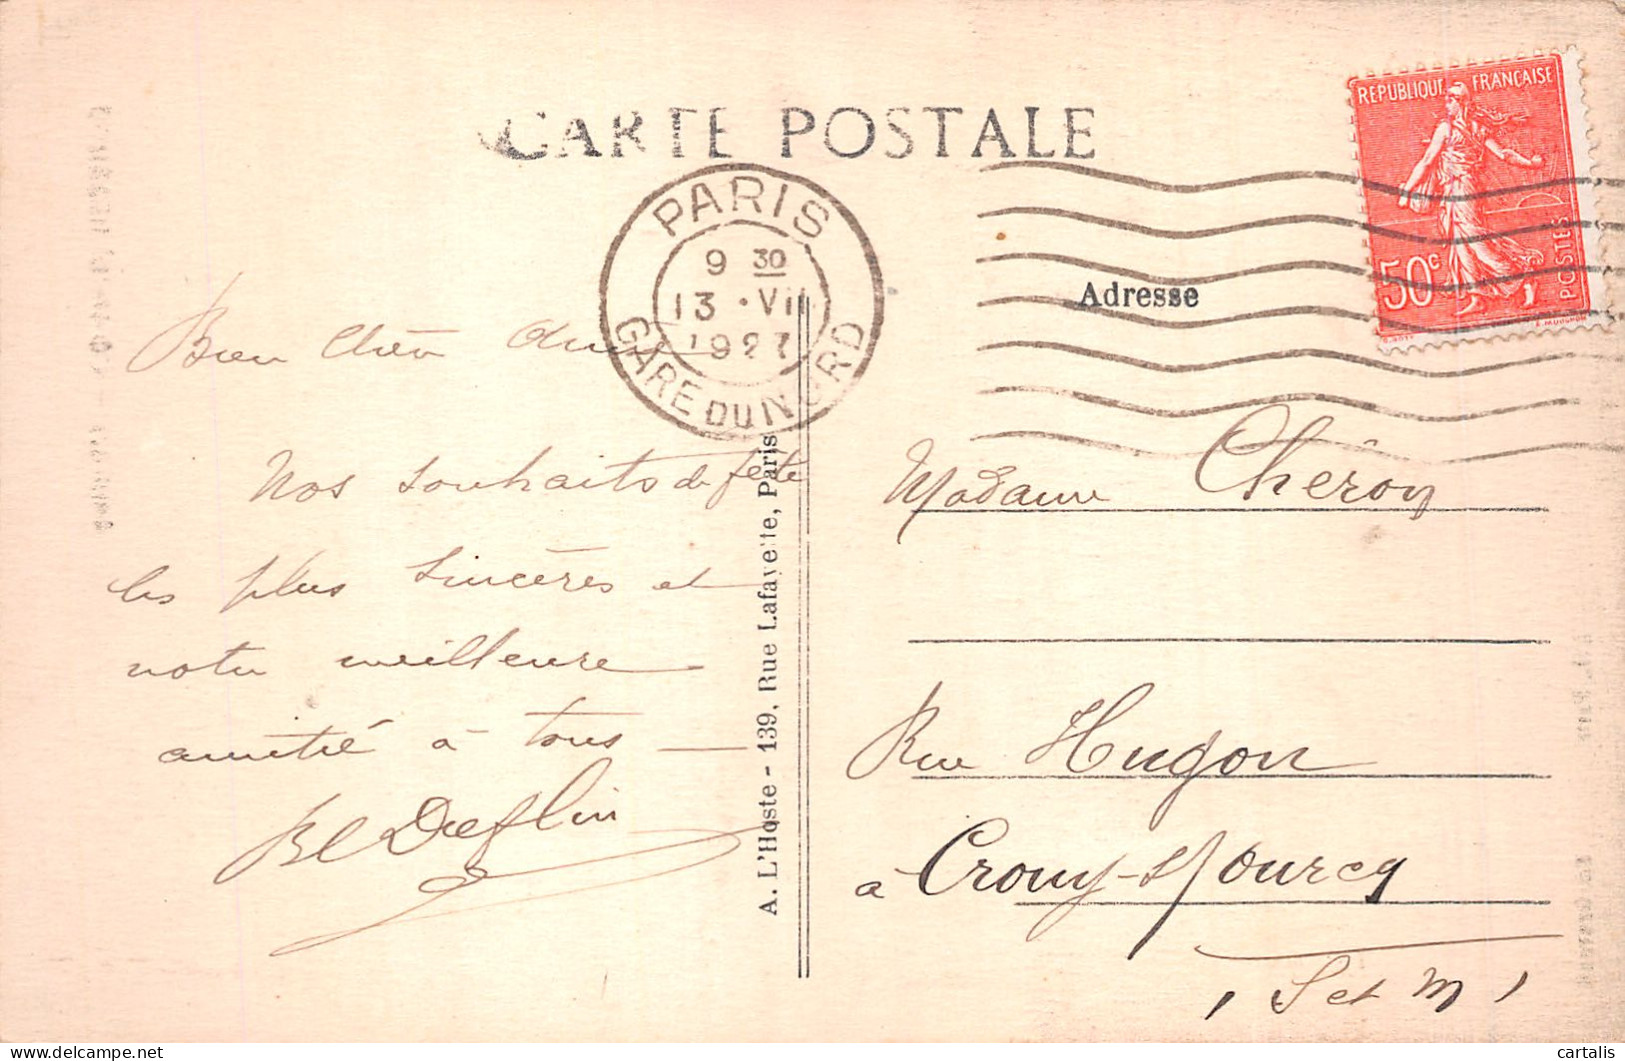 CARTE POSTALE
PARIS
9 30
13 · VII
1927
GARE DU NORD
REPUBLIQUE FRANÇAISE
50c
POSTES
Adresse
Bien Chère
Nos souhaits de fête
les plus sincères et
notre meilleure
amitié à tous
A. L'Hoste - 139, Rue Lafayette, Paris
Madame Chéron
Rue Hugon
à Crouy-s/Ourcq
(S et M)
cartalis